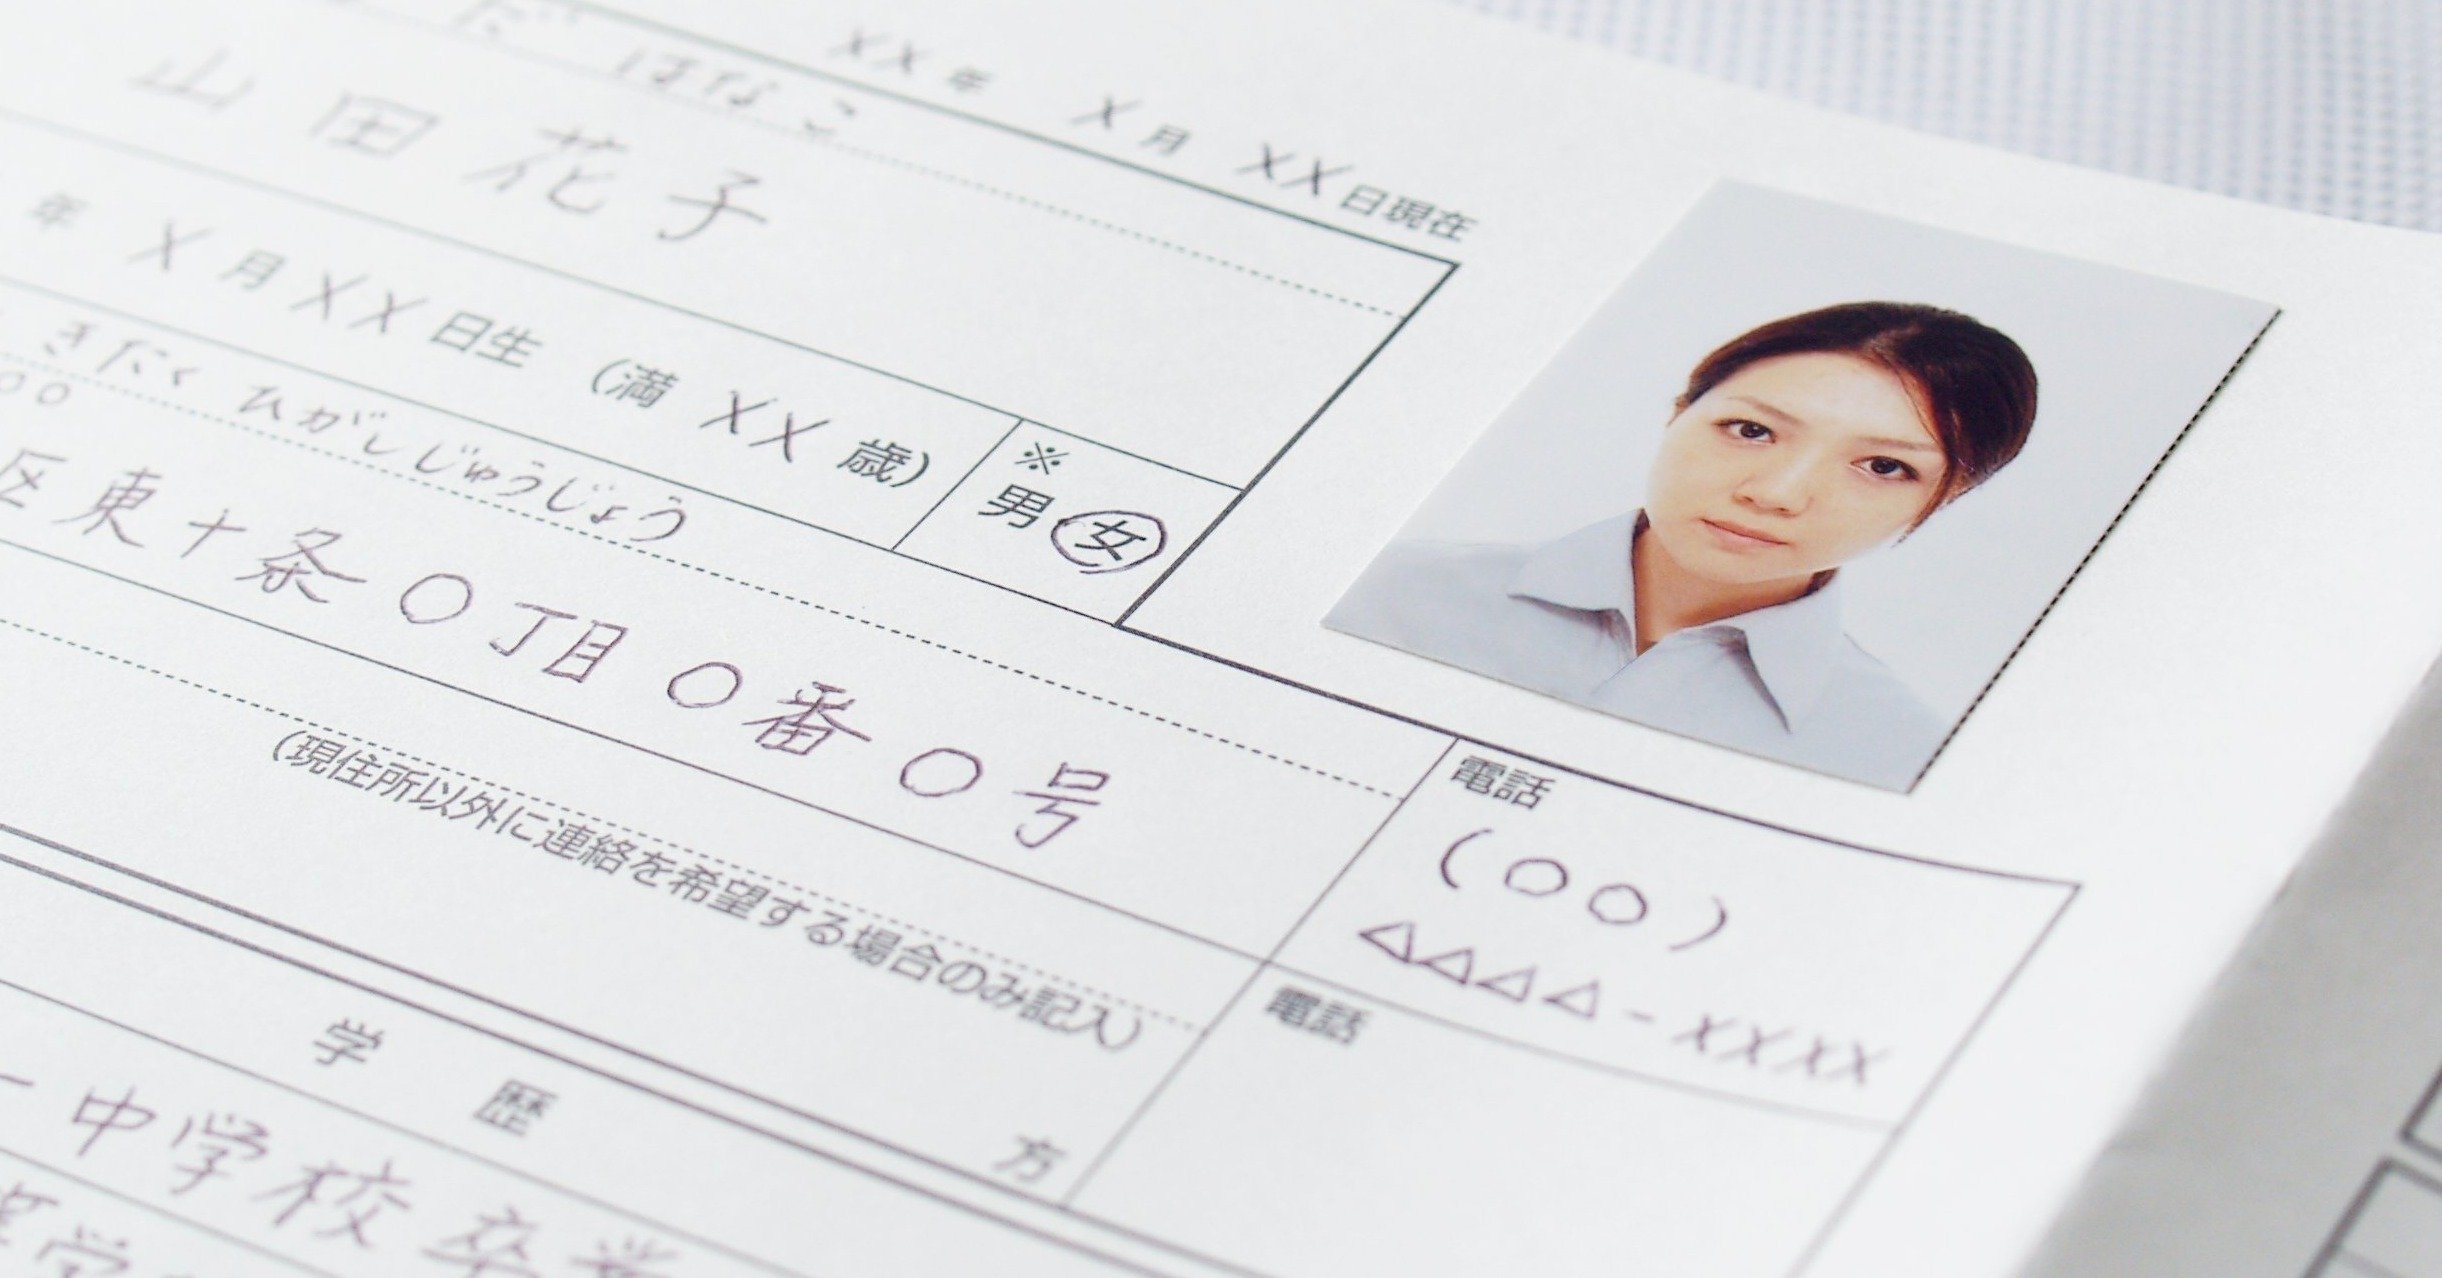 XX年 X月 XX日現在
だ はなこ
山田花子
年 X月XX日生 (満 XX 歳)
※
男 女
きたく ひがしじゅうじょう
区東十条〇丁目〇番〇号
電話
(〇〇)
△△△△-XXXX
(現住所以外に連絡を希望する場合のみ記入)
電話
方
学歴
中学校卒業